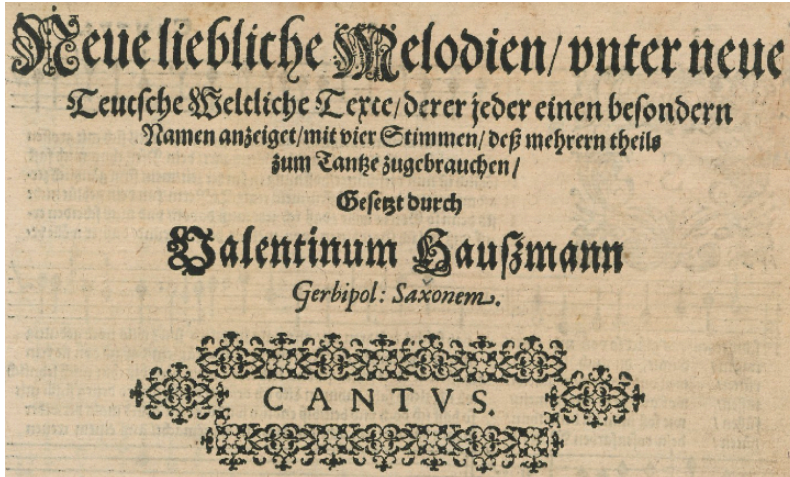 Neue liebliche Melodien/ vnter neue
Teutsche Weltliche Texte/ derer jeder einen besondern
Namen anzeiget/ mit vier Stimmen/ deß mehrern theils
zum Tantze zugebrauchen/
Gesetzt durch
Valentinum Haußmann
Gerbipol: Saxonem.
CANTVS.